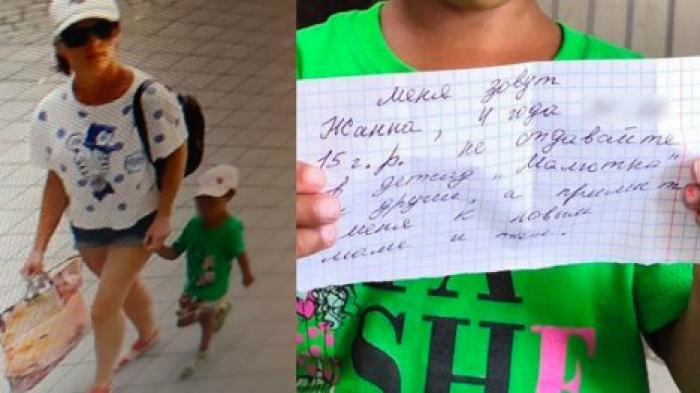 меня зовут
Жанна, 4 года
15 г. р. не отдавайте
в детсад „Малютка"
и другие, а
меня к новым
маме и
SHE